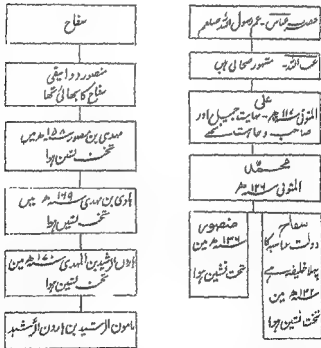 حضرت عباس - عم رسول اللہ صلعم
عبد اللہ - مشہور صحابی ہیں
علی
المتوفی ۱۱۷ھ - نہایت جمیل اور
صاحب وجاہت تھے
محمد
المتوفی ۱۲۶ھ
سفاح
دولت عباسیہ کا
پہلا خلیفہ ہے
۱۳۲ھ مین
تخت نشین ہوا
منصور
۱۳۶ھ مین
تخت نشین ہوا
سفاح
منصور دوانیقی
سفاح کا بھائی تھا
مہدی بن منصور ۱۵۸ھ میں
تخت نشین ہوا
ہادی بن مہدی ۱۶۹ھ میں
تخت نشین ہوا
ہارون الرشید بن المہدی ۱۷۰ھ مین
تخت نشین ہوا
مامون الرشید بن ہارون الرشید